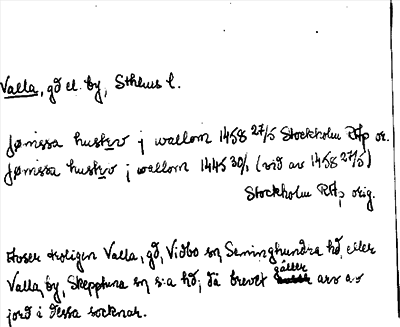 Valla, gd el. by, Sthlms l.
Jønissa hustrv j wallom 1458 27/5 Stockholm RAp or.
Jønissa hustrv j wallom 1445 30/1 (vid av 1458 27/5)
Stockholm RAp orig.
Avser troligen Valla, gd, Vidbo sn, Seminghundra hd, eller
Valla, by, Skepptuna sn, s:a hd, då brevet gäller arv av
jord i dessa socknar.